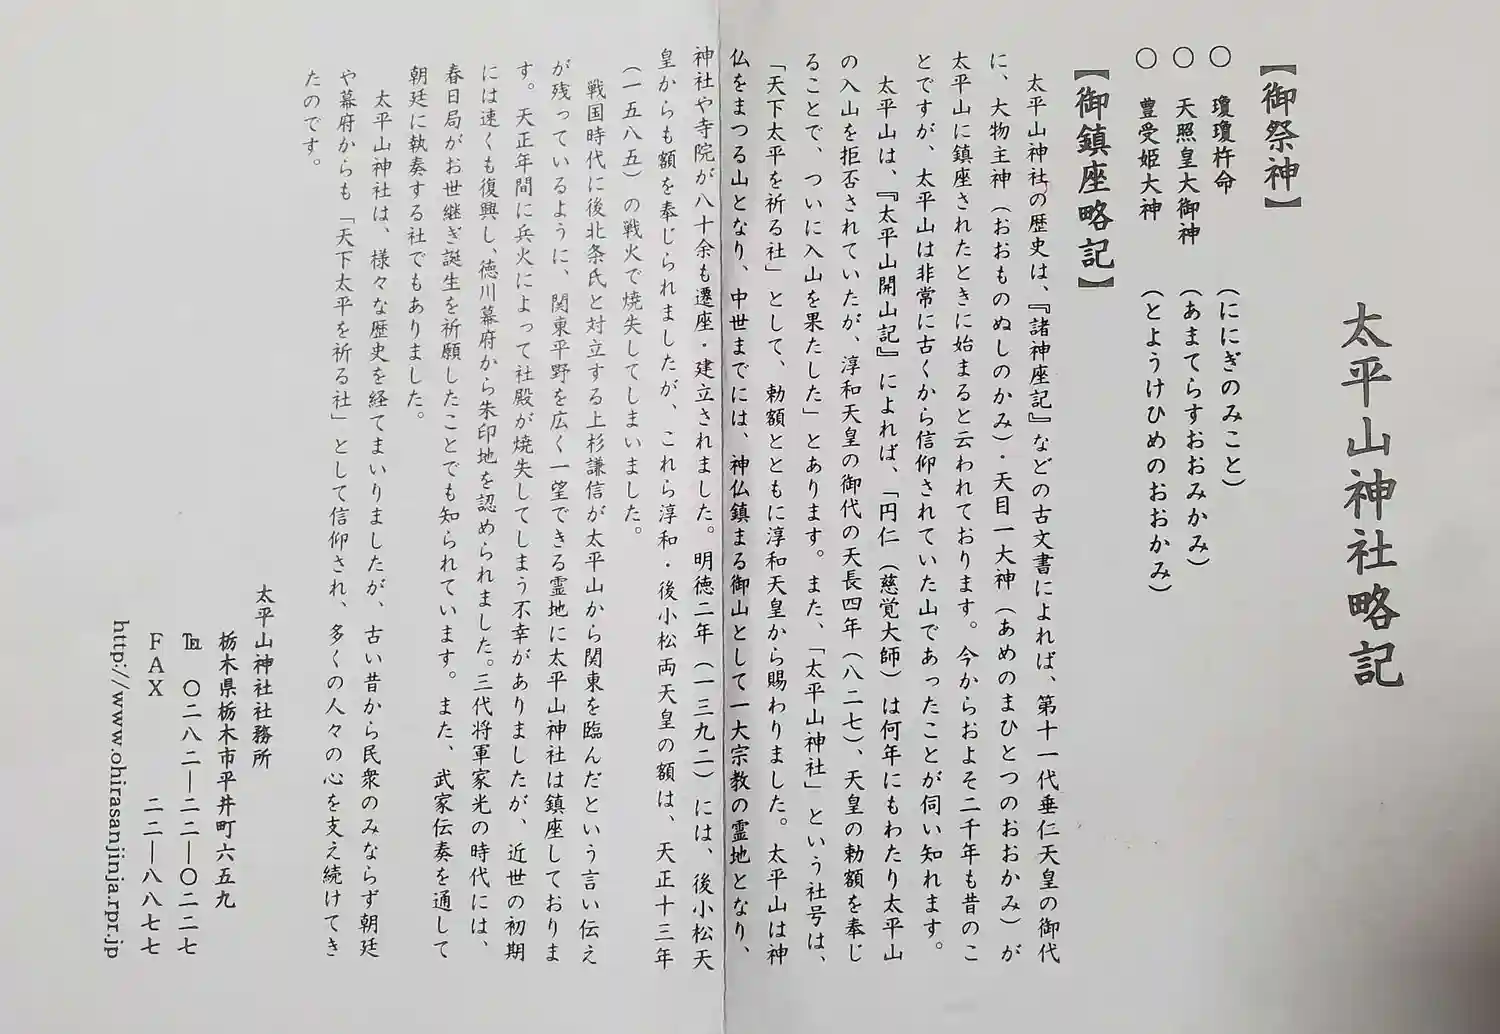 太平山神社略記
【御祭神】
〇 瓊瓊杵命 （ににぎのみこと）
〇 天照皇大御神 （あまてらすおおみかみ）
〇 豊受姫大神 （とようけひめのおおかみ）
【御鎮座略記】
太平山神社の歴史は、『諸神座記』などの古文書によれば、第十一代垂仁天皇の御代
に、大物主神（おおものぬしのかみ）・天目一大神（あめのまひとつのおおかみ）が
太平山に鎮座されたときに始まると云われております。今からおよそ二千年も昔のこ
とですが、太平山は非常に古くから信仰されていた山であったことが伺い知れます。
太平山は、『太平山開山記』によれば、「円仁（慈覚大師）は何年にもわたり太平山
の入山を拒否されていたが、淳和天皇の御代の天長四年（八二七）、天皇の勅額を奉じ
ることで、ついに入山を果たした」とあります。また、「太平山神社」という社号は、
「天下太平を祈る社」として、勅額とともに淳和天皇から賜わりました。太平山は神
仏をまつる山となり、中世までには、神仏鎮まる御山として一大宗教の霊地となり、
神社や寺院が八十余も遷座・建立されました。明徳二年（一三九二）には、後小松天
皇からも額を奉じられましたが、これら淳和・後小松両天皇の額は、天正十三年
（一五八五）の戦火で焼失してしまいました。
戦国時代に後北条氏と対立する上杉謙信が太平山から関東を臨んだという言い伝え
が残っているように、関東平野を広く一望できる霊地に太平山神社は鎮座しておりま
す。天正年間に兵火によって社殿が焼失してしまう不幸がありましたが、近世の初期
には速くも復興し、徳川幕府から朱印地を認められました。三代将軍家光の時代には、
春日局がお世継ぎ誕生を祈願したことでも知られています。また、武家伝奏を通して
朝廷に執奏する社でもありました。
太平山神社は、様々な歴史を経てまいりましたが、古い昔から民衆のみならず朝廷
や幕府からも「天下太平を祈る社」として信仰され、多くの人々の心を支え続けてき
たのです。
太平山神社社務所
栃木県栃木市平井町六五九
℡ 〇二八二―二二―〇二二七
ＦＡＸ 二二―八八七七
http://www.ohirasanjinja.rpr.jp